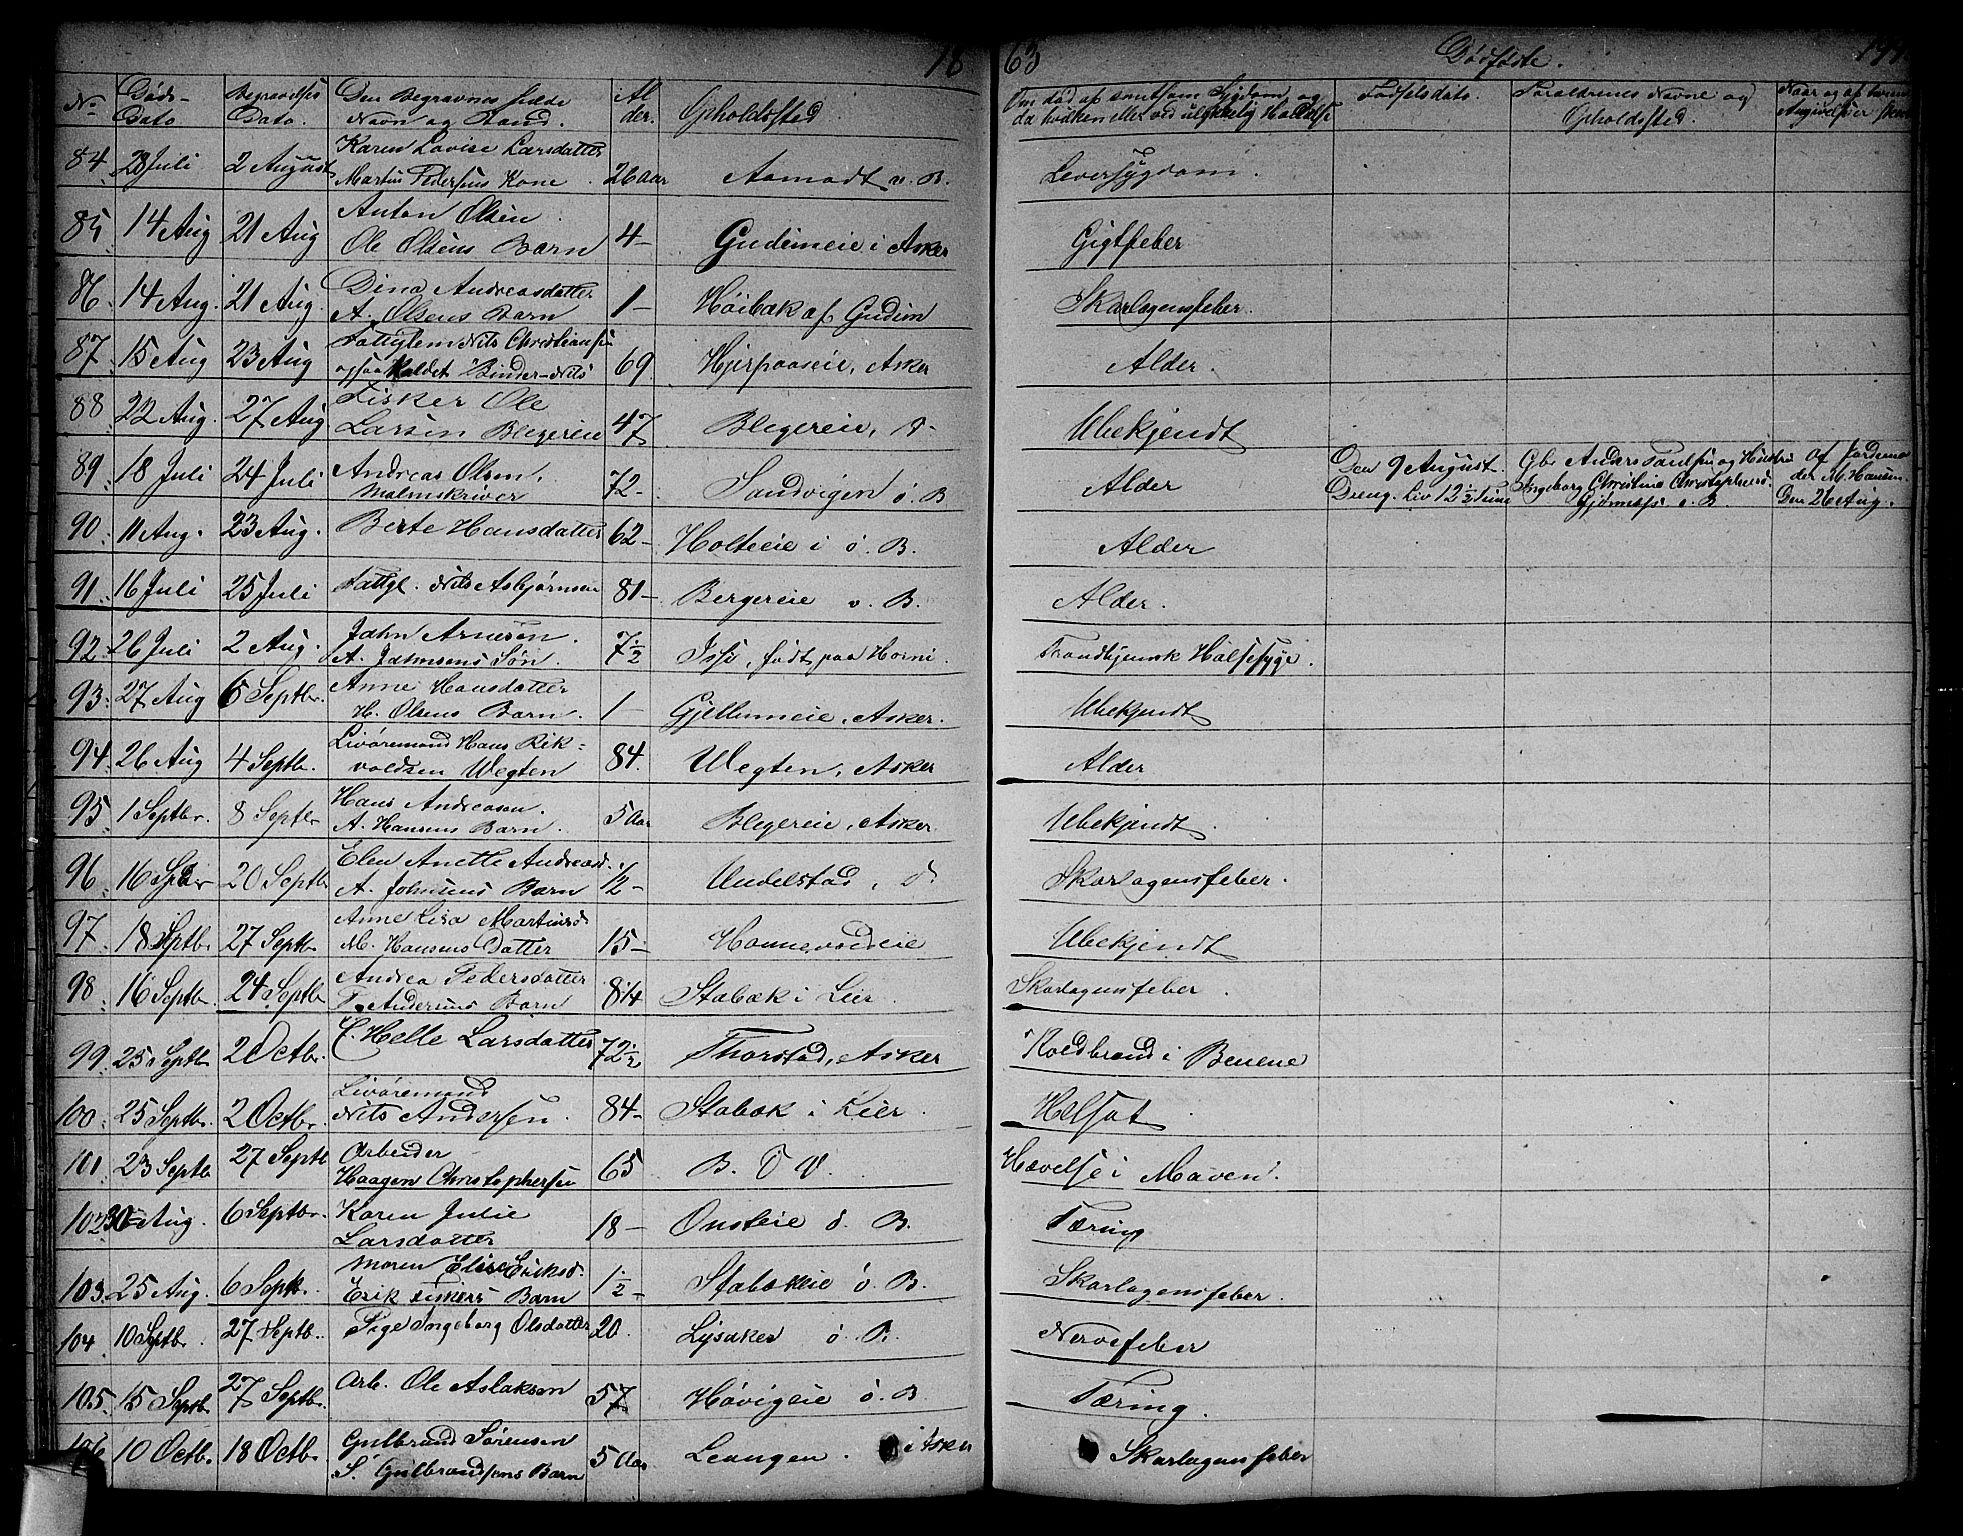 18 63 Dødfødte.
No Døds-Dato Begravelses Dato. Den Begravnes fulde Navn og Stand. Alder. Opholdssted Om død af smitsom Sygdom, og da hvilken eller ved ulykkelig Hændelse Fødselsdato. Forældrenes Navne og Opholdssted. Naar og af hvem Angivelsen
84 28 Juli 2 August Karen Lovise Larsdatter
Martin Pedersens Kone. 26 Aar Aamodt v. B. Leversygdom.
85 14 Aug 21 Aug Anton Olsen
Ole Olsens Barn 4- Gudimeie i Asker Gigtfeber
86. 14 Aug. 21 Aug. Dina Andreasdatter
A. Olsens Barn 1- Høibak af Gudim Skarlagensfeber.
87. 15 Aug 23 Aug Fattiglem Nils Christiansen
ogsaa kaldet Binder-Nils 69. Hjerpaaseie, Asker Alder.
88 22 Aug. 27 Aug Fisker Ole
Larsen Blegereie 47 Blegereie, d- Ubekjendt
89. 18 Juli 24 Juli Andreas Olsen.
Malmskriver 72- Sandvigen ø. B Alder
Den 9 August.
Dreng. Liv 12 1/2 Time
Gbr Anders Paulsen og Hustru
Ingeborg Christine Christophersd.
Gjønnæss v. B.
Af Jordemo
der M. Hansen.
Den 26 Aug.
90. 11 Aug. 23 Aug. Berte Hansdatter 62- Holteeie i ø. B. Alder
91. 16 Juli 25 Juli Fattgl. Nils Asbjørnsen 81- Bergereie v. B. Alder.
92. 26 Juli 2 Aug. Jahn Arnesen.
A. Jahnsens Søn. 7 1/2 Issi, født paa Horni. Trondhjemsk Halsesyge.
93. 27 Aug 6 Septbr. Anne Hansdatter
H. Olsens Barn. 1- Gjellumeie, Asker. Ubekjendt
94. 26 Aug 4 Septb. Livøremand Hans Rik-
voldsen Wegten 84. Wegten, Asker Alder
95. 1 Septbr. 8 Septbr Hans Andreasen.
A. Hansens Barn. 5 Aar Blegereie, Asker. Ubekjendt.
96. 16 Septbr 20 Septbr Elen Anette Andreasd.
A. Johnsens Barn 1/2- Undelstad, d. Skarlagensfeber.
97. 18 Septb. 27 Septb. Anne Lisa Martinsd.
M. Hansens Datter 15- Hannevoldeie Ubekjendt
98. 16 Septbr. 24 Septbr Andrea Pedersdatter
P. Andersens Barn 8 1/4 Stabæk i Leier. Skarlagensfeber.
99. 25 Septbr 2 Octbr. F. Helle Larsdatter 72 1/2 Thorstad, Asker Koldbrand i Benene
100. 25 Septbr. 2 Octbr. Livøremand
Nils Andersen. 84- Stabæk i Leier. Helsot
101. 23 Septb 27 Septb Arbeider
Haagen Christophersen 65 B. Ø V. Hævelse i Maven.
102. 30 Aug. 6 Septbr. Karen Julie
Larsdatter 18- Onsteie ø. B. Tæring
103. 25 Aug. 6 Septb. Maren Elise Eriksd.
Erik Barn 1 1/2- Stabækeie ø. B. Skarlagensfeber.
104. 10 Septbr. 27 Septb. Pige Ingeborg Olsdatter 20. Lysaker ø. B. Nervefeber
105. 15 Septb. 27 Septbr. Arb. Ole Aslaksen 57 Høvigeie ø. B Tæring.
106 10 Octb. 18 Octb. Gulbrand Sørensen
S. Gulbrandsens Barn 5 Aar Leangen. i Asker Skarlagensfeber